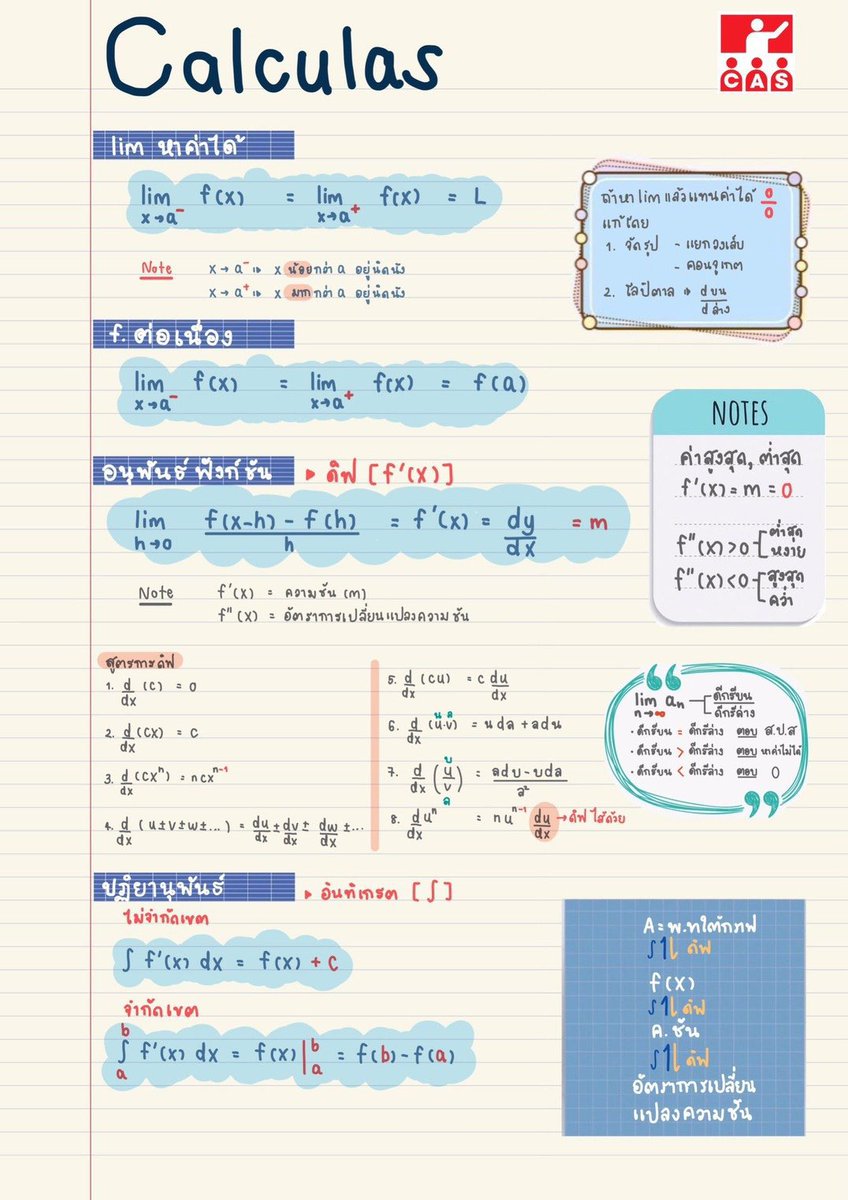 Calculas
CAS
lim หาค่าได้
lim f(x) = lim f(x) = L
x→a⁻ x→a⁺
Note x→a⁻ ⇒ x น้อยกว่า a อยู่นิดนึง
x→a⁺ ⇒ x มากกว่า a อยู่นิดนึง
ถ้าหา lim แล้วแทนค่าได้ 0/0
แก้โดย
1. จัดรูป - แยกวงเล็บ
- คอนจูเกต
2. โลปิตาล ⇒ dบน/dล่าง
f. ต่อเนื่อง
lim f(x) = lim f(x) = f(a)
x→a⁻ x→a⁺
NOTES
ค่าสูงสุด, ต่ำสุด
f'(x) = m = 0
f"(x) > 0 ต่ำสุด หงาย
f"(x) < 0 สูงสุด คว่ำ
อนุพันธ์ ฟังก์ชัน ▸ ดิฟ [f'(x)]
lim f(x-h) - f(h)/h = f'(x) = dy/dx = m
h→0
Note f'(x) = ความชัน (m)
f"(x) = อัตราการเปลี่ยนแปลงความชัน
สูตรการดิฟ
1. d/dx (c) = 0
2. d/dx (cx) = c
3. d/dx (cxⁿ) = ncxⁿ⁻¹
4. d/dx (u±v±w±...) = du/dx ± dv/dx ± dw/dx ±...
5. d/dx (cu) = c du/dx
น ล
6. d/dx (u·v) = นdล + ลdน
บ
7. d/dx (u/v) = ลdบ-บdล/ล²
ล
8. d/dx uⁿ = nuⁿ⁻¹ du/dx → ดิฟไส้ด้วย
lim aₙ ดีกรีบน/ดีกรีล่าง
n→∞
• ดีกรีบน = ดีกรีล่าง ตอบ ส.ป.ส
• ดีกรีบน > ดีกรีล่าง ตอบ หาค่าไม่ได้
• ดีกรีบน < ดีกรีล่าง ตอบ 0
ปฏิยานุพันธ์ ▸ อินทิเกรต [∫]
ไม่จำกัดเขต
∫ f'(x) dx = f(x) + c
จำกัดเขต
b
∫ f'(x) dx = f(x) |ᵇₐ = f(b) - f(a)
a
A = พ.ทใต้กราฟ
∫↑↓ ดิฟ
f(x)
∫↑↓ ดิฟ
ค.ชัน
∫↑↓ ดิฟ
อัตราการเปลี่ยน
แปลงความชัน